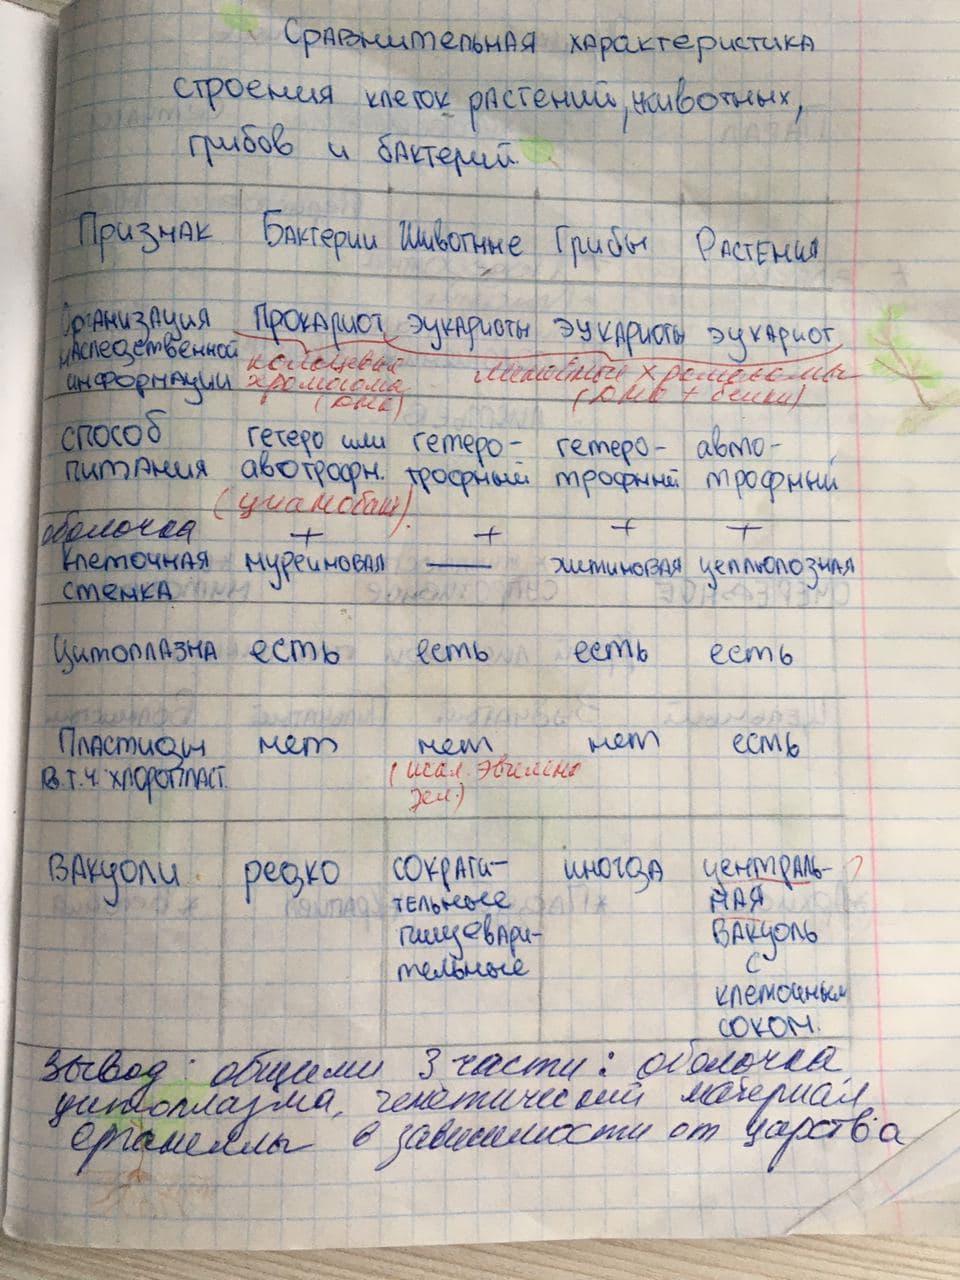 Сравнительная характеристика
строения клеток растений, животных,
грибов и бактерий.
Признак Бактерии Животные Грибы Растения
Организация Прокариот эукариоты эукариоты эукариот
наследственной кольцевая линейные хромосомы
информации хромосома (ДНК + белки)
(ДНК)
способ гетеро или гетеро- гетеро- авто-
питания автотрофн. трофный трофный трофный
(цианобакт).
оболочка + + + +
клеточная муреиновая — хитиновая целлюлозная
стенка
Цитоплазма есть есть есть есть
Пластиды нет нет нет есть
в.т.ч. хлоропласт. (искл. эвглена
зел.)
Вакуоли редко сократи- иногда централь- ?
тельные ная
пищевари- вакуоль
тельные с
клеточным
соком.
Вывод: общими 3 части: оболочка
цитоплазма, генетический материал,
органеллы в зависимости от царства